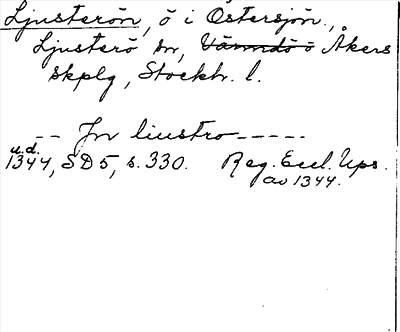 Ljusterön, ö i Östersjön.,
Ljusterö sn, Värmdö ö Åkers
skplg, Stockh. l.
-- Jn liustro -----
u.d.
1344, SD 5, s. 330. Reg. Eccl. Ups.
av 1344.